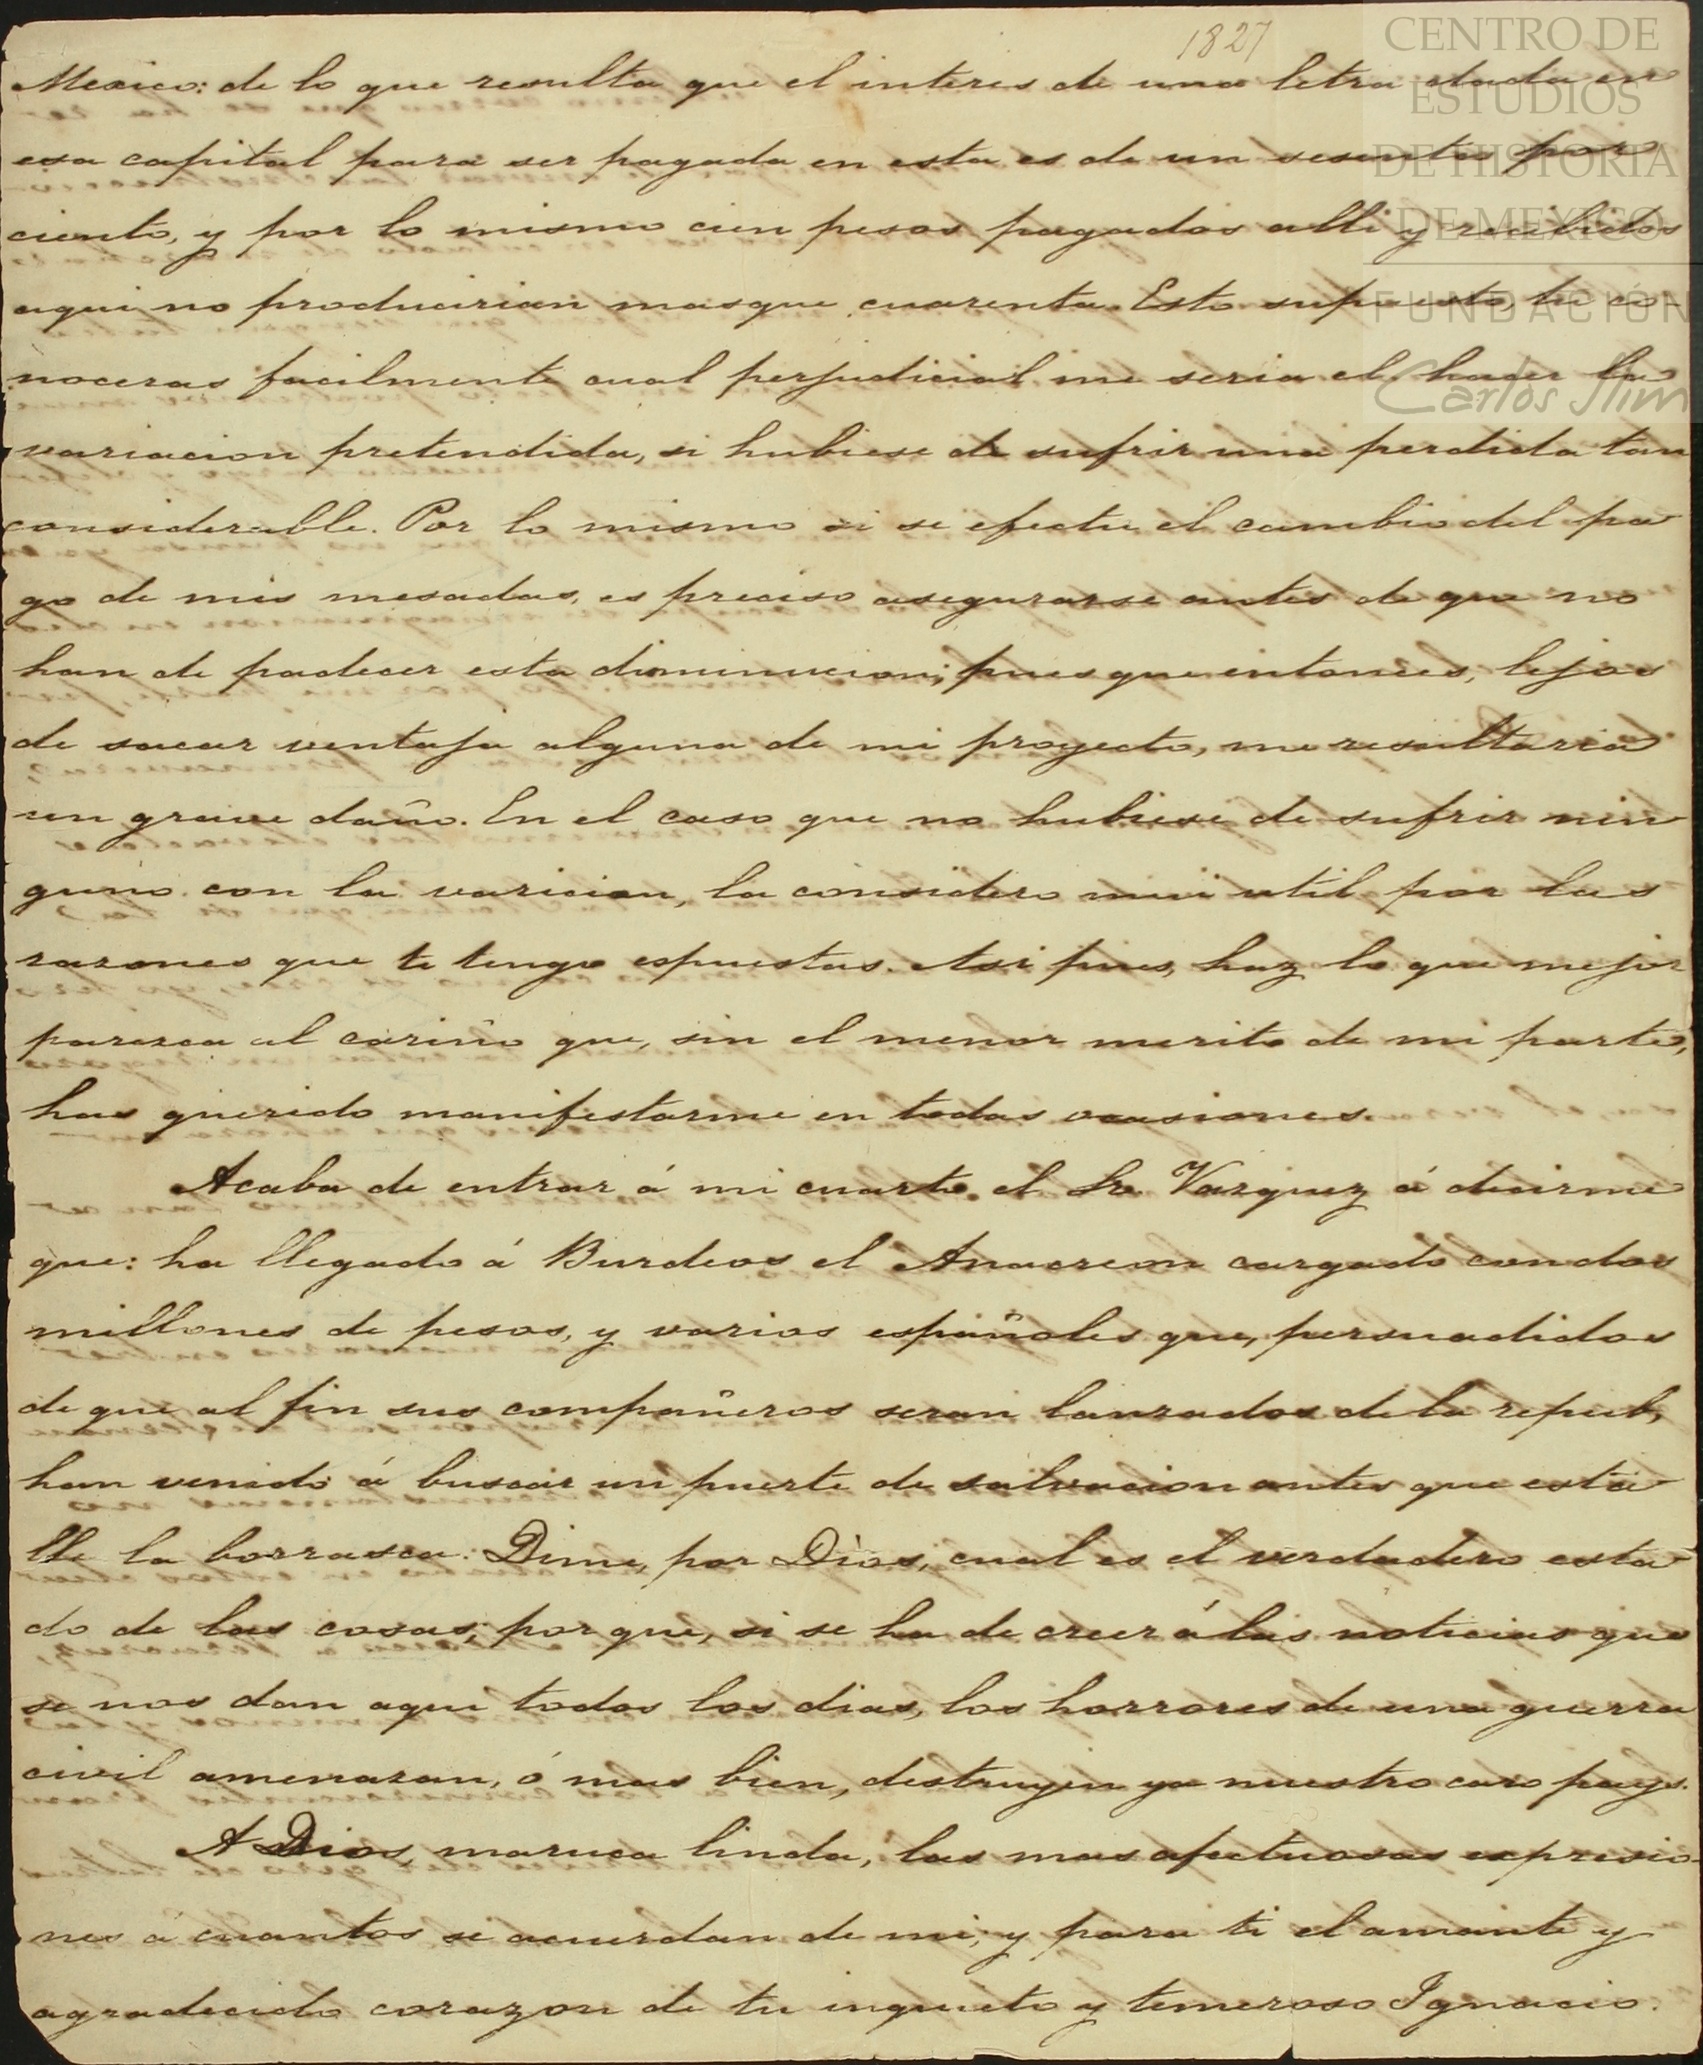 1827
CENTRO DE
ESTUDIOS
DE HISTORIA
DE MEXICO
FUNDACIÓN
Carlos Slim
Mexico: de lo que resulta que el interes de una letra dada en
esa capital para ser pagada en esta es de un sesenta por
ciento, y por lo mismo cien pesos pagados alli y recibidos
aqui no producirian mas que cuarenta. Esto supuesto, tu co-
noceras facilmente cual perjudicial me seria el hacer la
variacion pretendida, si hubiese de sufrir una perdida tan
considerable. Por lo mismo si se efectu el cambio del pa
go de mis mesadas, es preciso asegurarse antes de que no
han de padecer esta diminucion; pues que entonces, lejos
de sacar ventaja alguna de mi proyecto, me resultaria
un grave daño. En el caso que no hubiese de sufrir nin
guno con la varicion, la considero mui util por las
razones que te tengo espuestas. Asi pues, haz lo que mejor
paresca al cariño que, sin el menor merito de mi parte,
has querido manifestarme en todas ocasiones.
Acaba de entrar á mi cuarto el Sr. Vazquez á decirme
que: ha llegado á Burdeos el Anacreon cargado con dos
millones de pesos, y varios españoles que, persuadidos
de que al fin sus compañeros seran lanzados de la repub,
han venido á buscar un puerto de salvacion antes que esta
lle la borrasca. Dime, por Dios, cual es el verdadero esta
do de las cosas; por que, si se ha de creer á las noticias que
se nos dan aqui todos los dias, los horrores de una guerra
civil amenazan, ó mas bien, destruyen ya nuestro caro pays.
A Dios, maruca linda, las mas afectuosas expresio-
nes á cuantos se acuerdan de mi; y para ti el amante y
agradecido corazon de tu inquieto y temeroso Ignacio.